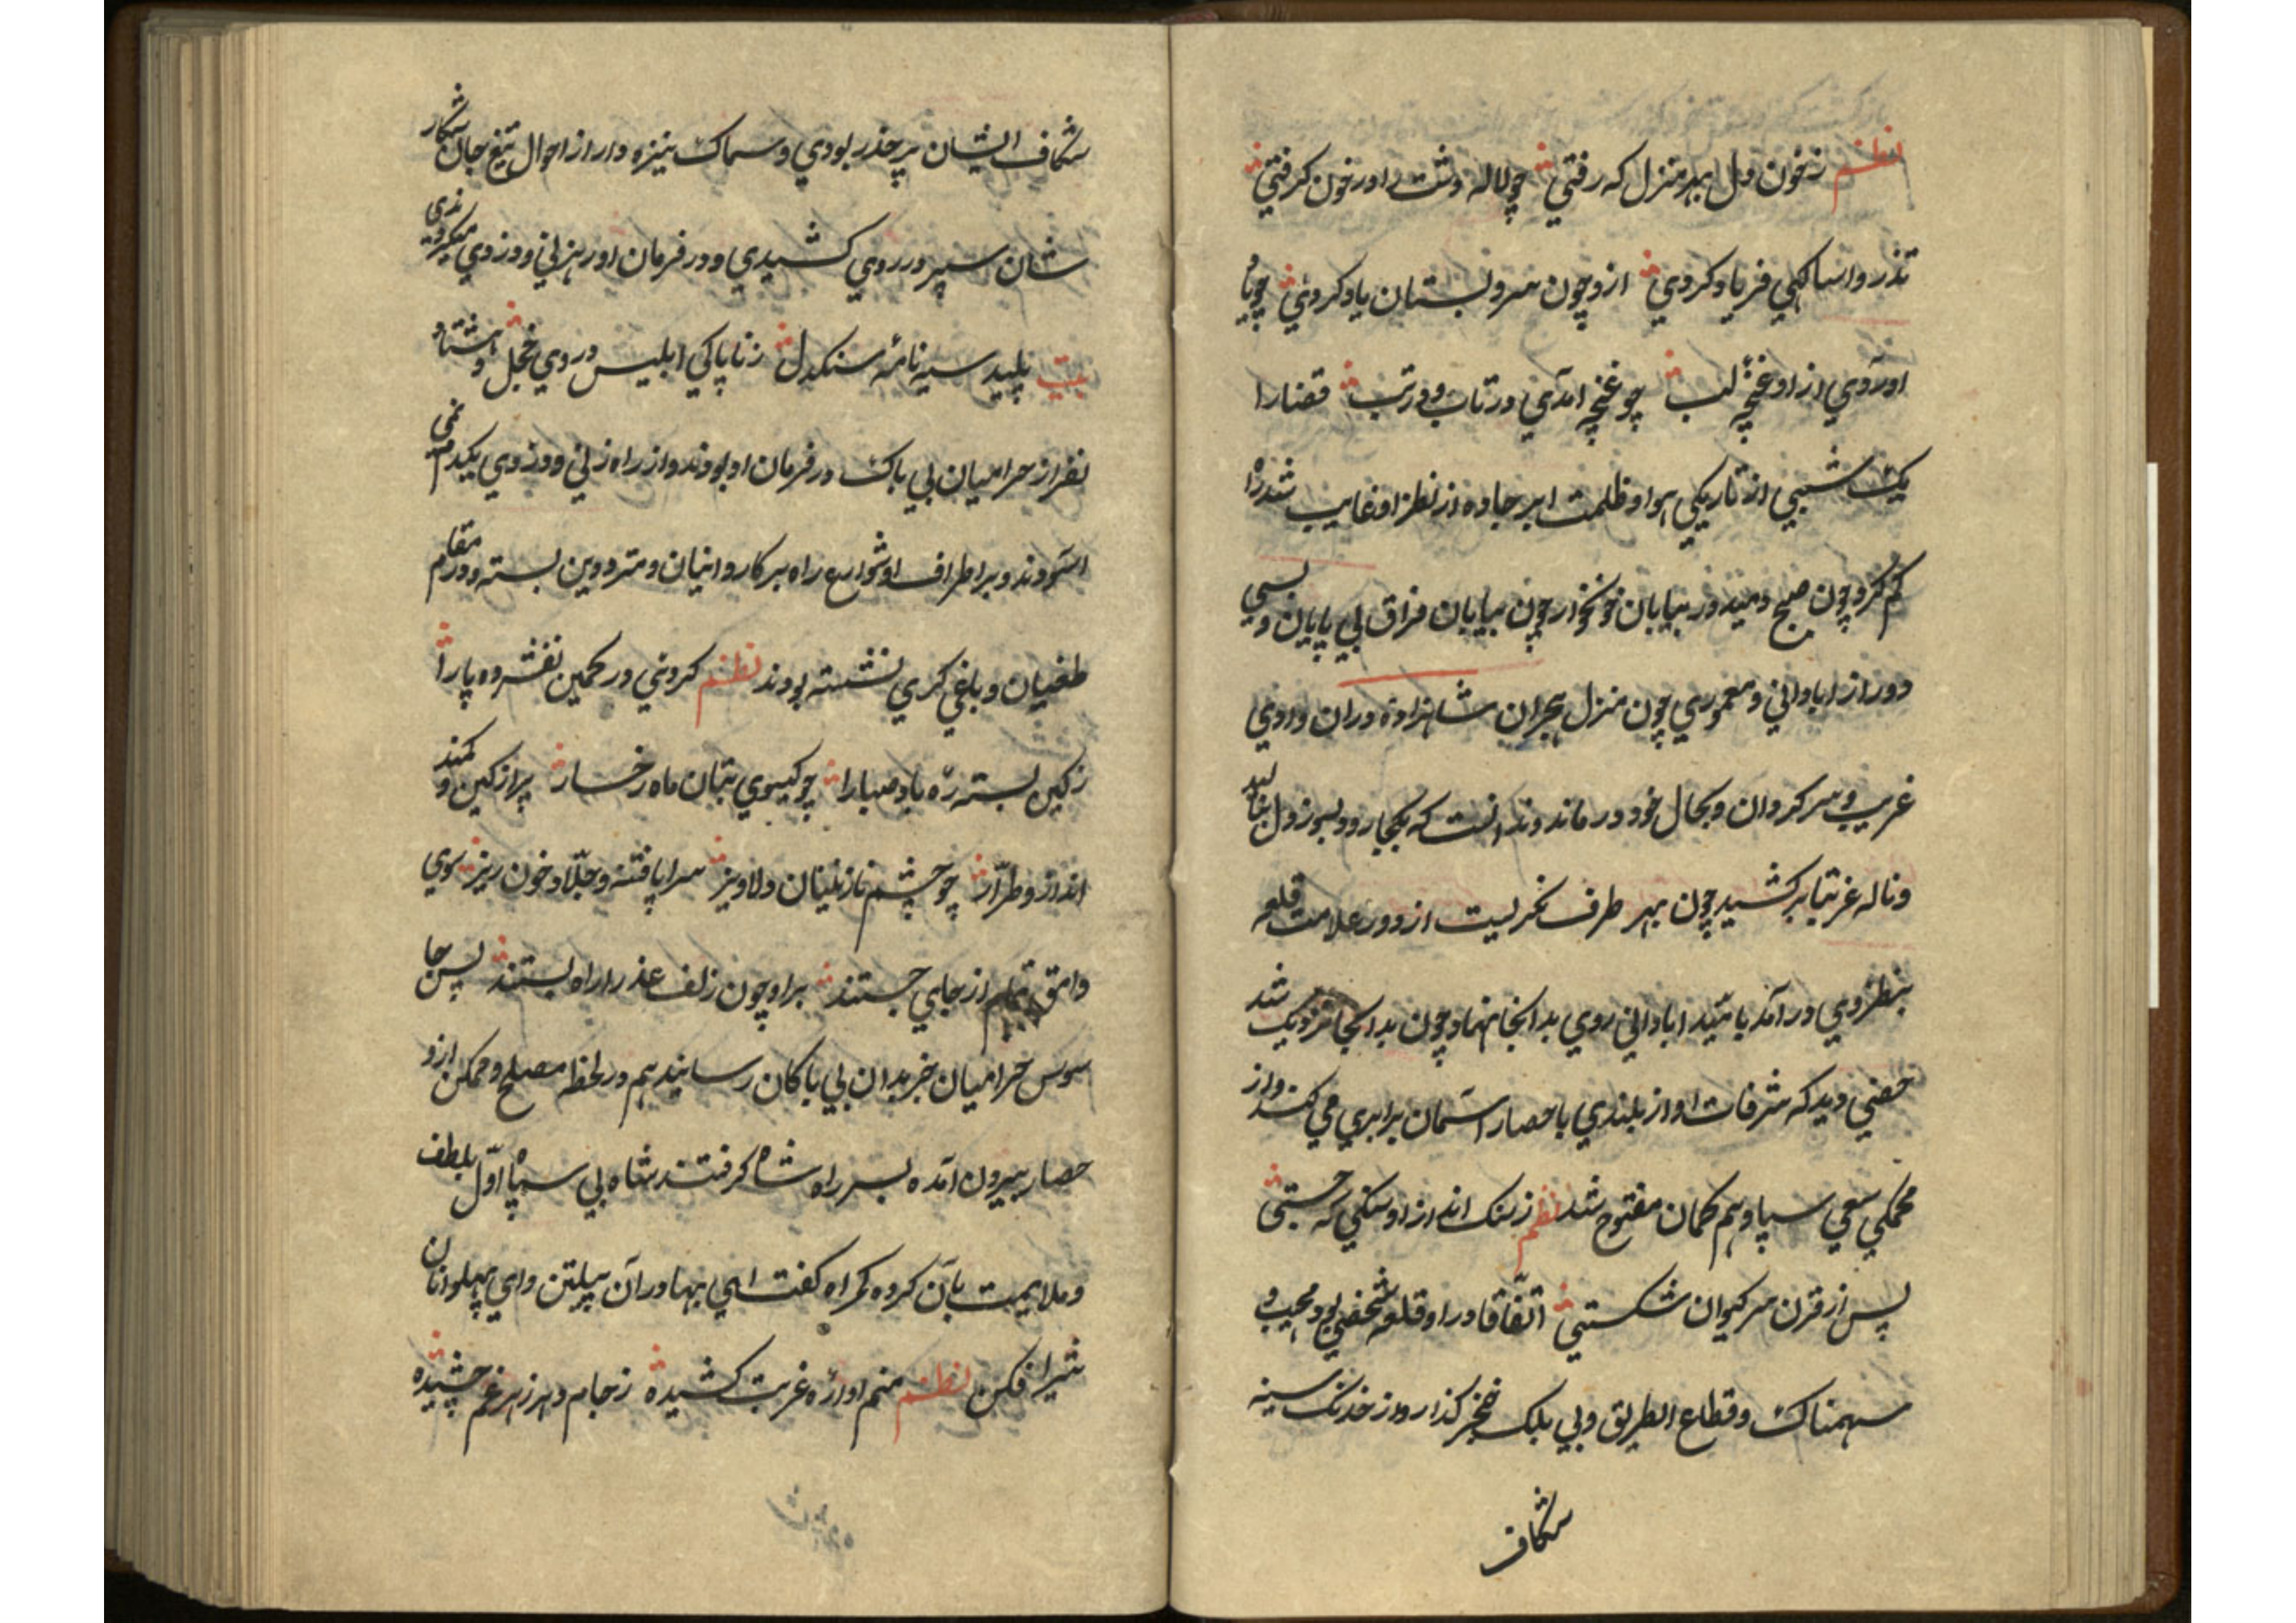 نظم ز خون دل بهر منزل که رفتی چو لاله دشت را در خون کرفتی
تذرو اسا کهی فریاد کردی ازو چون سرو بستان یاد کردی چو یاد
اوردی از او غنچه لب چو غنچه امدی در تاب و در تب قضا را
یک شبی از تاریکی هوا و ظلمت ابر جاده از نظر او غایب شد راه
کم کرد چون صبح دمید در بیابان خونخوار چون بیابان فراق بی پایان و بسی
دور از ابادانی و معموری چون منزل هجران شاهزاده دران وادی
غریب و سرکردان و بحال خود درماند ندانست که بکجا رود بسوز دل بنالید
و ناله غریبانه برکشید چون بهر طرف نکریست از دور علامت قلعه
بنظر وی در آمد بامید ابادانی روی بدانجا نهاد چون بدانجا نزدیک شد
حصنی دید که شرفات او از بلندی با حصار اسمان برابری می کند و از
محکمی سعی سپاه وهم کمان مفتوح شد نظم ز سنک انداز او سنکی که جستی
پس از قرن سر کیوان شکستی اتفاقا در او قلعه شخصی بود مهیب و
سهمناک و قطاع الطریق و بی بلک خنجر کذار و از خدنک سینه
شکاف
شکاف ایشان پر حذر بودی و سماک نیزه دار از احوال تیغ جان شکار
شان سپر در روی کشیدی و در فرمان او رهزنی و دزدی میکردندی
بیت پلید سیه نامه سنکدل ز ناپاکی ابلیس در وی خجل و هشتاد
نفر از حرامیان بی باک در فرمان او بودند و از راه زنی و دزدی یکدم نمی
اسودند و بر اطراف و شوارع راه بر کاروانیان و مترددین بسته و در مقام
طغیان و باغی کری نشسته بودند نظم کردنی در کمین نفشرده پا را
ز کین بسته ره باد صبا را چو کیسوی بتان ماه رخسار پر از کین و کمند
انداز و طرار چو چشم نازنینان دلاویز سراپا فتنه و جلاد خون ریز سوی
وامق تمام از جای جستند بر او چون زلف عذرا راه بستند پس جا
سوس حرامیان خبر بدان بی باکان رسانید هم در لحظه مصلح و ممکن ازو
حصار بیرون آمده بسر راه شاه کرفتند شاه بی سپاه اول بلطف
و ملایمت بآن کروه کمراه کفت ای بهادرآن پیلتن و ای پهلوانان
شیر افکن نظم منم اواره غربت کشیده ز جام دهر زهر غم چشیده